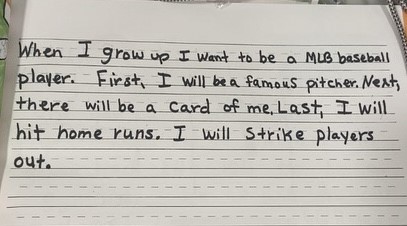 When I grow up I want to be a MLB baseball
player. First, I will be a famous pitcher. Next,
there will be a card of me. Last, I will
hit home runs. I will strike players
out.